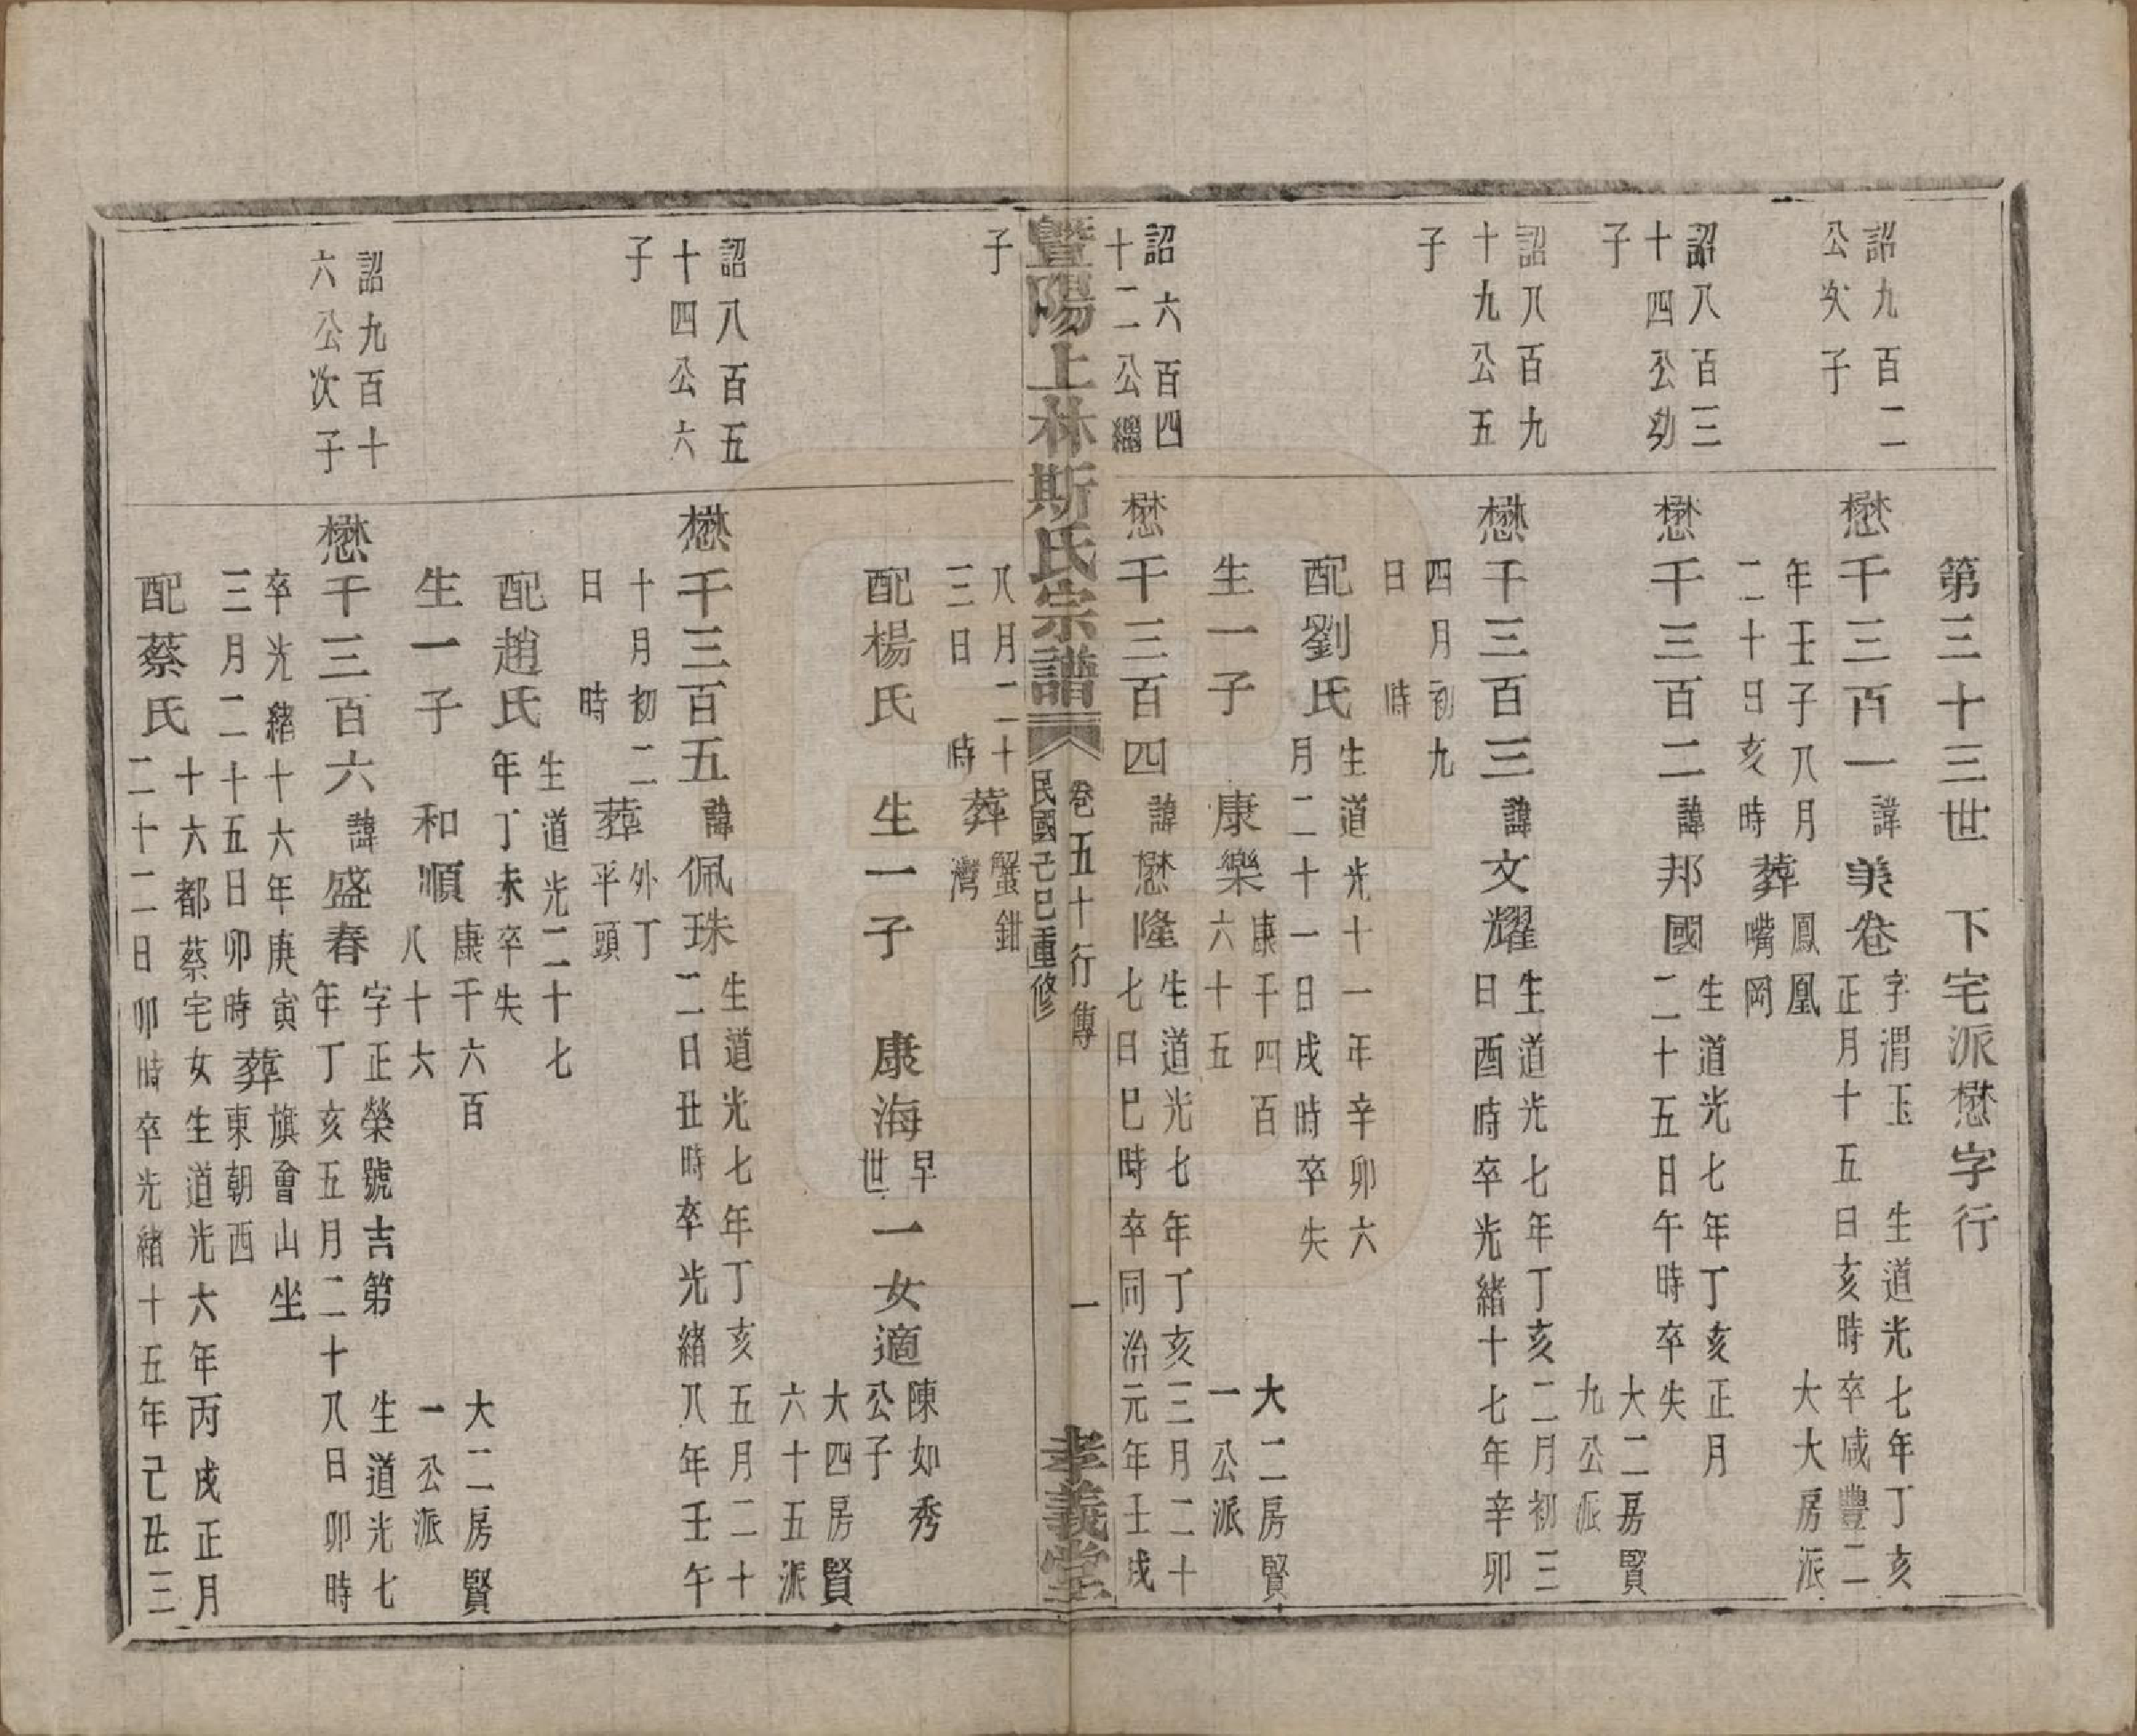 第三十三世　下宅派懋字行
詔九百二
公次子
懋千三百一
諱美卷
字渭玉　生道光七年丁亥
正月十五日亥時卒咸豐二
年壬子八月
二十日亥時
葬
鳳凰
嘴岡
大大房派
詔八百三
十四公幼
子
懋千三百二
諱邦國
生道光七年丁亥正月
二十五日午時卒失
大二房賢
九公派
詔八百九
十九公五
子
懋千三百三
諱文耀
生道光七年丁亥二月初三
日酉時卒光緒十七年辛卯
四月初九
日　時
配劉氏
生道光十一年辛卯六
月二十一日戌時卒失
生一子　康樂
康千四百
六十五
大二房賢
一公派
詔六百四
十二公繼
子
懋千三百四
諱懋隆
生道光七年丁亥三月二十
七日巳時卒同治元年壬戌
暨陽上林斯氏宗譜
卷五十行傳
民國己巳重修
一
孝義堂
八月二十
三日　時
葬
蟹鉗
灣
配楊氏　生一子　康海
早
世
一女適
陳如秀
公子
大四房賢
六十五派
詔八百五
十四公六
子
懋千三百五
諱佩珠
生道光七年丁亥五月二十
二日丑時卒光緒八年壬午
十月初二
日　時
葬
外丁
平頭
配趙氏
生道光二十七
年丁未卒失
生一子　和順
康千六百
八十六
大二房賢
一公派
詔九百十
六公次子
懋千三百六
諱盛春
字正榮號吉第　生道光七
年丁亥五月二十八日卯時
卒光緒十六年庚寅
三月二十五日卯時
葬
旗會山坐
東朝西
配蔡氏
十六都蔡宅女生道光六年丙戌正月
二十二日卯時卒光緒十五年己丑三